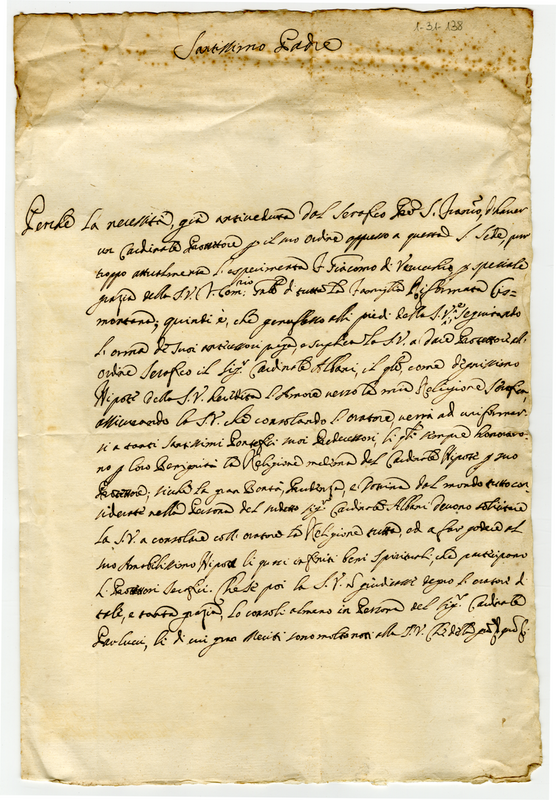 1-31-138
Santissimo Padre
Perche la necessità, già antiveduta dal Serafico Pre S. Franco, d'haver
un Cardinale Protettore p il suo ordine appresso a questa S. Sede, pur
troppo attualmente si esperimenta, F. Giacomo di p speciale
grazia della S.V. Gnle di tutta la famiglia Riformata Cis=
montana; quindi è, che genuflesso alli piedi della S.V. seguitando
l'orma de suoi antecessori prega, e supplica la S.V. a dare Protettore all'
ordine Serafico il Sigr Cardinale Albani, il qle, come degnissimo
Nipote della S.V. heredita l'amore verso la mia Religione Serafica
assicurando la S.V. che consolando l'oratore verrà ad uniformar
si a tanti Santissimi Pontefici suoi Predecessori, li qli sempre honoraro-
no p loro Benignità la Religione medma del Cardinale Nipote p suo
Protettore; siche la gran Bontà, Prudenza, e Dottrina dal mondo tutto con
siderate nella Persona del sudetto Sigr Cardinale Albani devono
la S.V. a consolare coll'oratore la Religione tutta, ed a far godere al
suo Amabilissimo Nipote li quasi infiniti beni Spirituali, che participano
li Protettori Serafici. Che se poi la S.V. ñ giudicasse degno l'oratore di
tale, e tanta grazia, lo consoli almeno in Persona del Sigr Cardinale
Paulucci, li di cui gran Meriti sono molto noti alla S.V. Che della